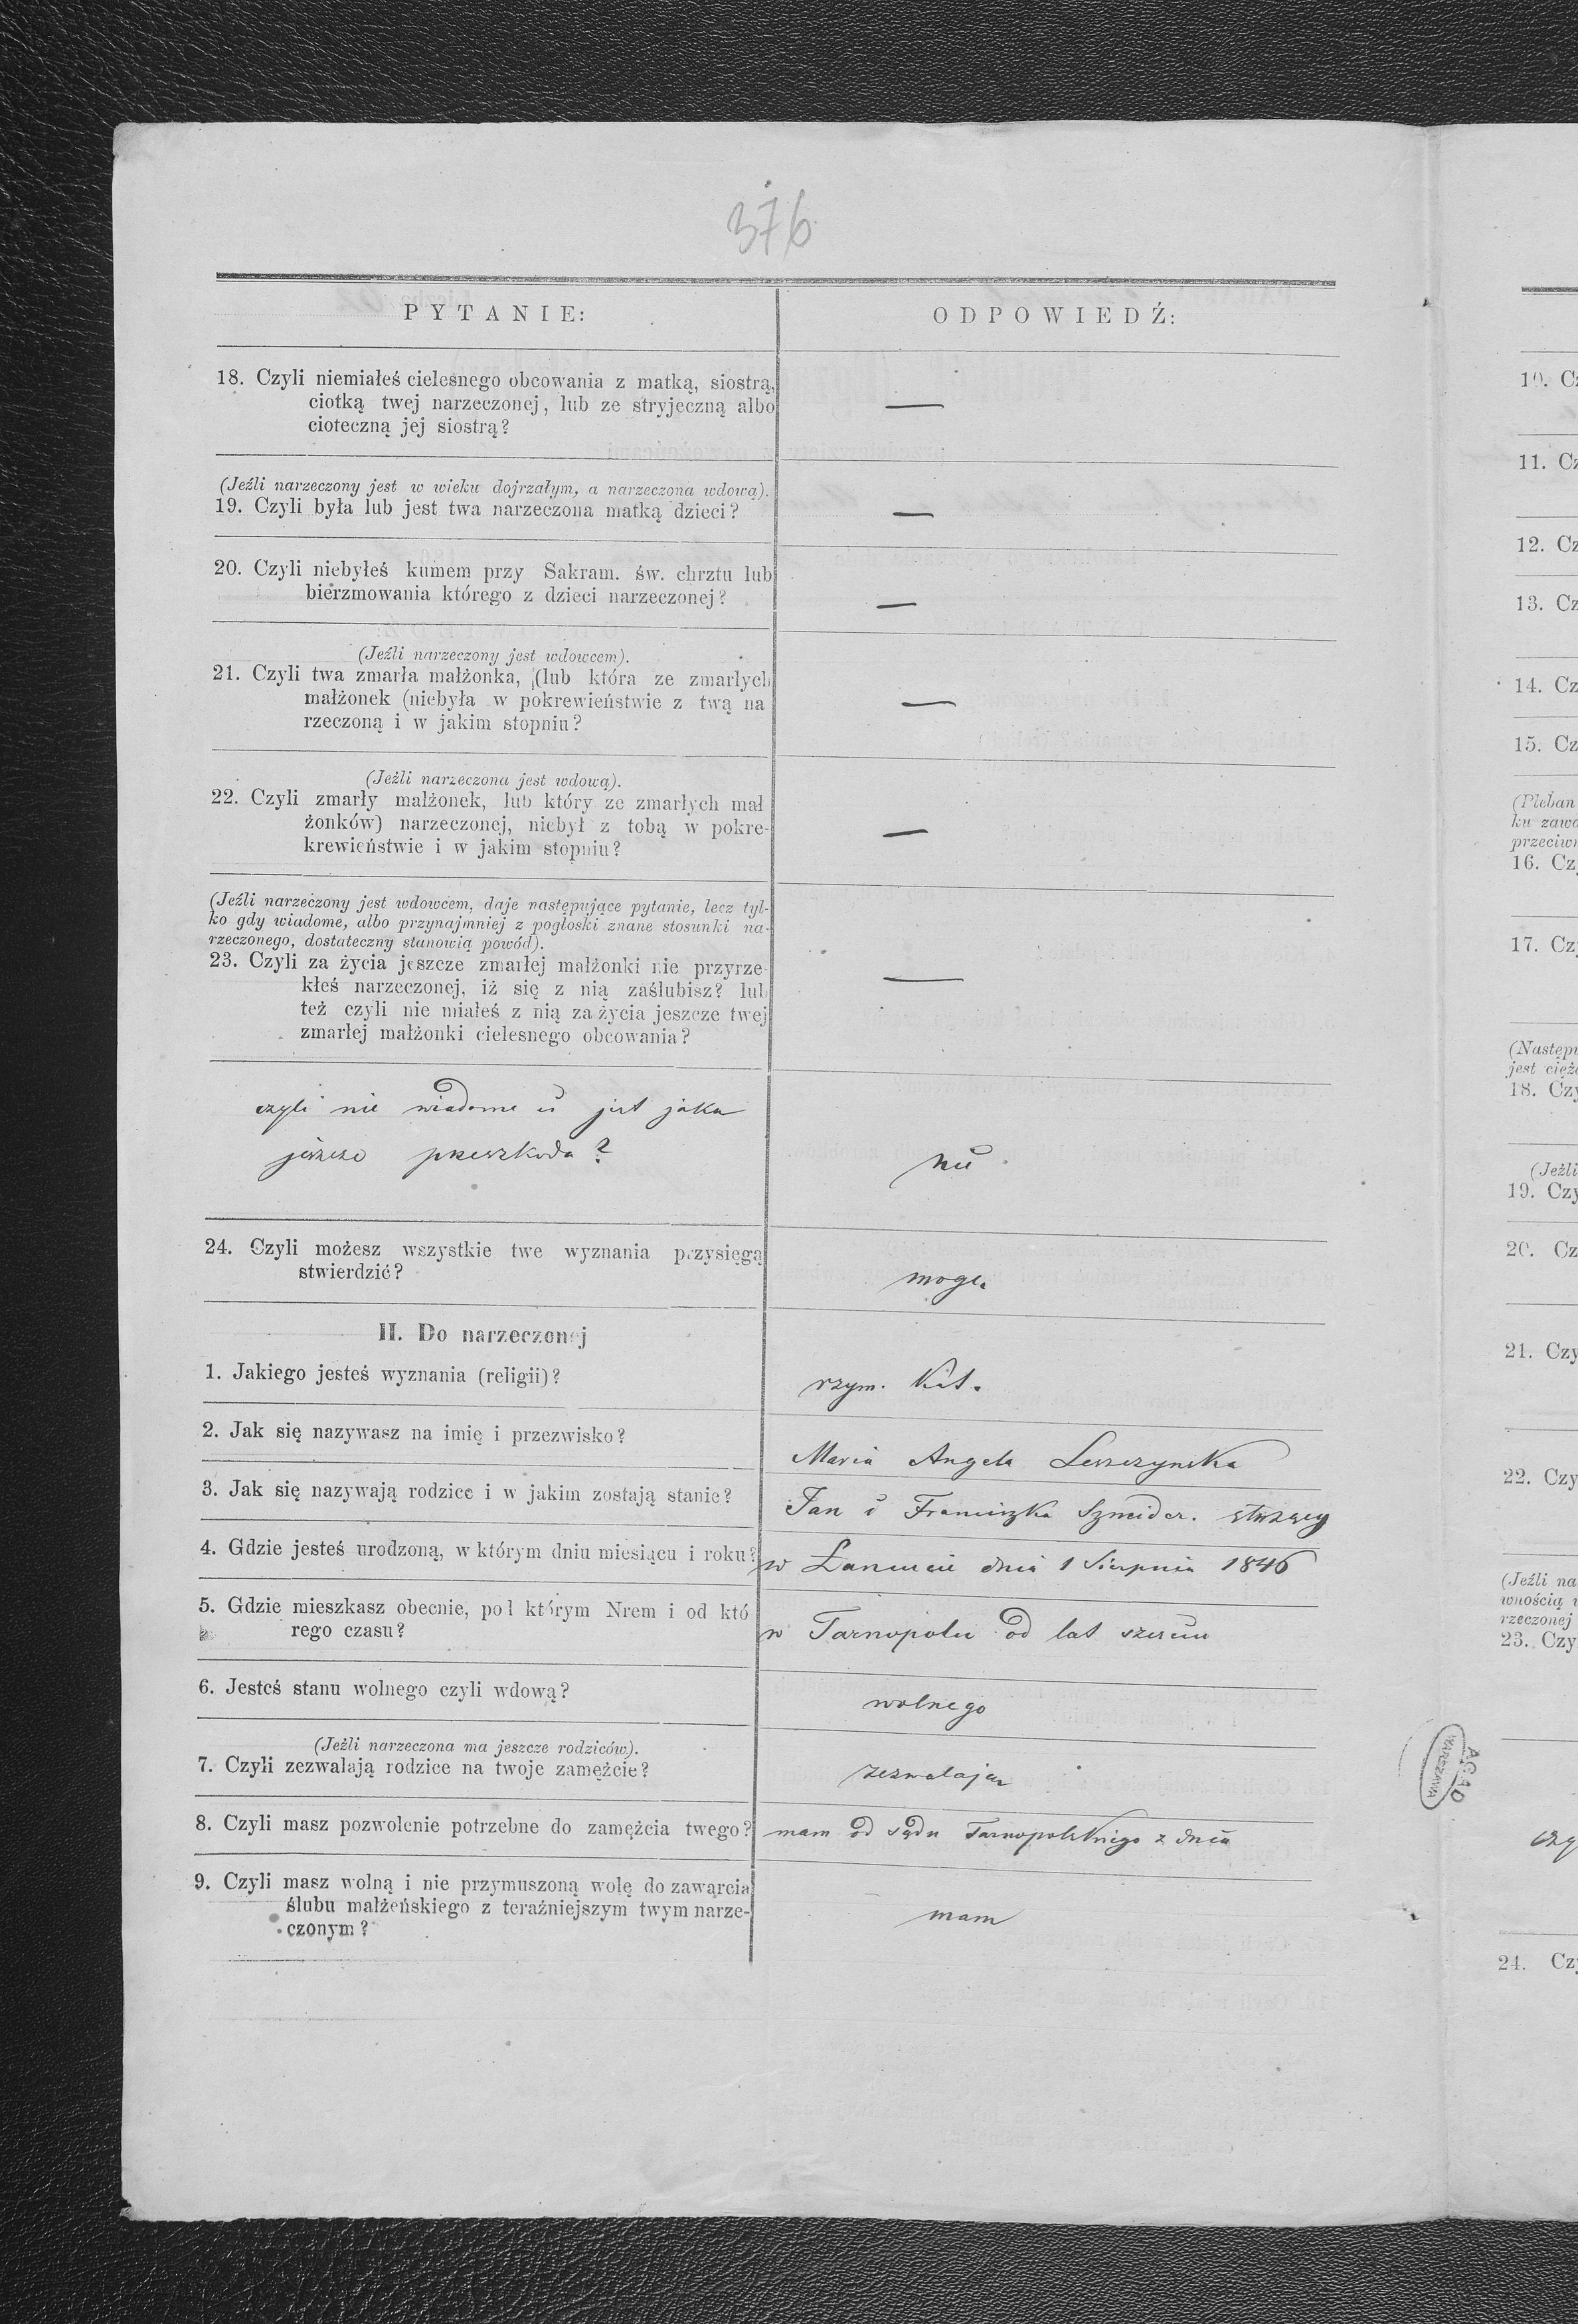 376
PYTANIE:
ODPOWIEDŹ:
18. Czyli niemiałeś cielesnego obcowania z matką, siostrą,
ciotką twej narzeczonej, lub ze stryjeczną albo
cioteczną jej siostrą?
—
(Jeźli narzeczony jest w wieku dojrzałym, a narzeczona wdową).
19. Czyli była lub jest twa narzeczona matką dzieci?
—
20. Czyli niebyłeś kumem przy Sakram. św. chrztu lub
bierzmowania którego z dzieci narzeczonej?
—
(Jeźli narzeczony jest wdowcem).
21. Czyli twa zmarła małżonka, (lub która ze zmarłych
małżonek (niebyła w pokrewieństwie z twą na
rzeczoną i w jakim stopniu?
—
(Jeżli narzeczona jest wdową).
22. Czyli zmarły małżonek, lub który ze zmarłych mał
żonków) narzeczonej, niebył z tobą w pokre-
krewieństwie i w jakim stopniu?
—
(Jeźli narzeczony jest wdowcem, daje następujące pytanie, lecz tyl-
ko gdy wiadome, albo przynajmniej z pogłoski znane stosunki na-
rzeczonego, dostateczny stanowią powód).
23. Czyli za życia jeszcze zmarłej małżonki nie przyrze-
kłeś narzeczonej, iż się z nią zaślubisz? lub
też czyli nie miałeś z nią za życia jeszcze twej
zmarlej małżonki cielesnego obcowania?
—
czyli nie wiadome ci jest jaka
jeszcze przeszkoda?
nie
24. Czyli możesz wszystkie twe wyznania przysięgą
stwierdzić?
mogę.
II. Do narzeczonej
1. Jakiego jesteś wyznania (religii)?
rzym. Kat.
2. Jak się nazywasz na imię i przezwisko?
Maria Angela Leszczynska
3. Jak się nazywają rodzice i w jakim zostają stanie?
Jan i Franciszka Szmider.
4. Gdzie jesteś urodzoną, w którym dniu miesiącu i roku?
w Łancucie dnia 1 Sierpnia 1846
5. Gdzie mieszkasz obecnie, pod którym Nrem i od któ
rego czasu?
w Tarnopolu od lat sześciu
6. Jesteś stanu wolnego czyli wdową?
wolnego
(Jeżli narzeczona ma jeszcze rodziców).
7. Czyli zezwalają rodzice na twoje zamężcie?
zezwalają
8. Czyli masz pozwolenie potrzebne do zamężcia twego?
mam od sądu Tarnopolskiego z dnia
9. Czyli masz wolną i nie przymuszoną wolę do zawarcia
ślubu małżeńskiego z teraźniejszym twym narze-
czonym?
mam
10. Cz
11. Cz
12. Cz
13. Cz
14. Cz
15. Cz
(Pleban
ku zawa
przeciwn
16. Cz
17. Czy
(Następu
jest cięż
18. Czy
(Jeżli
19. Czy
20. Cz
21. Czy
22. Czy
(Jeźli na
wnością
rzeczonej
23. Czy
AGAD
WARSZAWA
czy
24. Czy